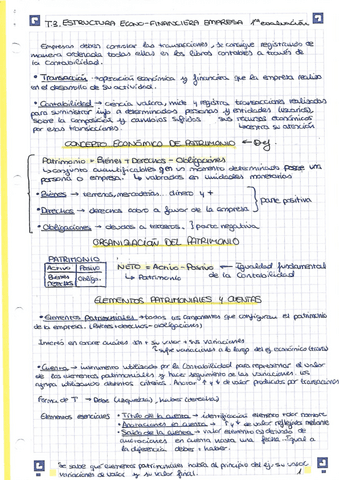 T3. ESTRUCTURA ECONO-FINANCIERA EMPRESA 1ª evaluación
Empresas deben controlar las transacciones, se consigue registrando de
manera ordenada todas ellas en los libros contables a través de
la contabilidad.
• Transacción → operación económica y financiera que la empresa realiza
en el desarrollo de su actividad.
• Contabilidad → ciencia valora, mide y registra transacciones realizadas
para suministrar info a determinadas personas y entidades (usuarios)
sobre la composición y cambios sufridos sus recursos económicos
por esas transacciones. su atención
CONCEPTO ECONÓMICO DE PATRIMONIO ← Def.
Patrimonio = Bienes + Derechos - Obligaciones
↳ conjunto cuantificables en un momento determinado posee una
persona o empresa. ↳ valorados en unidades monetarias
• Bienes → terrenos, mercaderías.. dinero y +
• Derechos → derechos cobro a favor de la empresa
parte positiva
• Obligaciones → deudas a terceros. } parte negativa
ORGANIZACIÓN DEL PATRIMONIO
PATRIMONIO
Activo Pasivo
Bienes Obliga.
NETO = Activo - Pasivo ← Igualdad fundamental
↳ Patrimonio de la Contabilidad
ELEMENTOS PATRIMONIALES Y CUENTAS
• Elementos Patrimoniales → todos los componentes que configuran el patrimonio
de la empresa. (Bienes + derechos - obligaciones)
Interés en conocer cuáles son + su valor + sus variaciones
↳ sufre variaciones a lo largo del ej. económico
• Cuenta → instrumento utilizado por la Contabilidad para representar el valor
de los elementos patrimoniales y hacer seguimiento de las variaciones, los
agrupa utilizando distintos criterios. Anotar ↑ y ↓ de valor producidos por transacciones
Forma de T → Debe (izquierda), haber (derecha)
Elementos esenciales • Título de la cuenta → identificación elemento + dar nombre
• Anotaciones en cuenta → ↑ y ↓ de valor reflejados mediante
• Saldo de la cuenta → valor elemento después de
anotaciones en cuenta hasta una fecha. Igual a
la diferencia debe - haber.
Se sabe qué elementos patrimoniales había al principio del ej. su valor
variaciones de valor y su valor final.
1